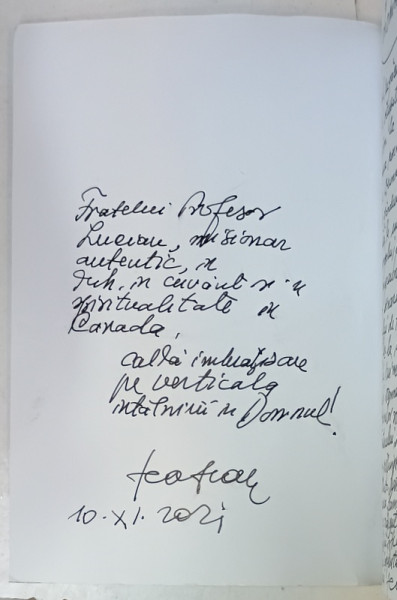 Fratelui Profesor
Lucian, misionar
autentic, în
Duh, în cuvânt și în
spiritualitate în
Canada,
caldă îmbrățișare
pe verticala
întâlnirii în Domnul!
Teofan
10.XI.2021